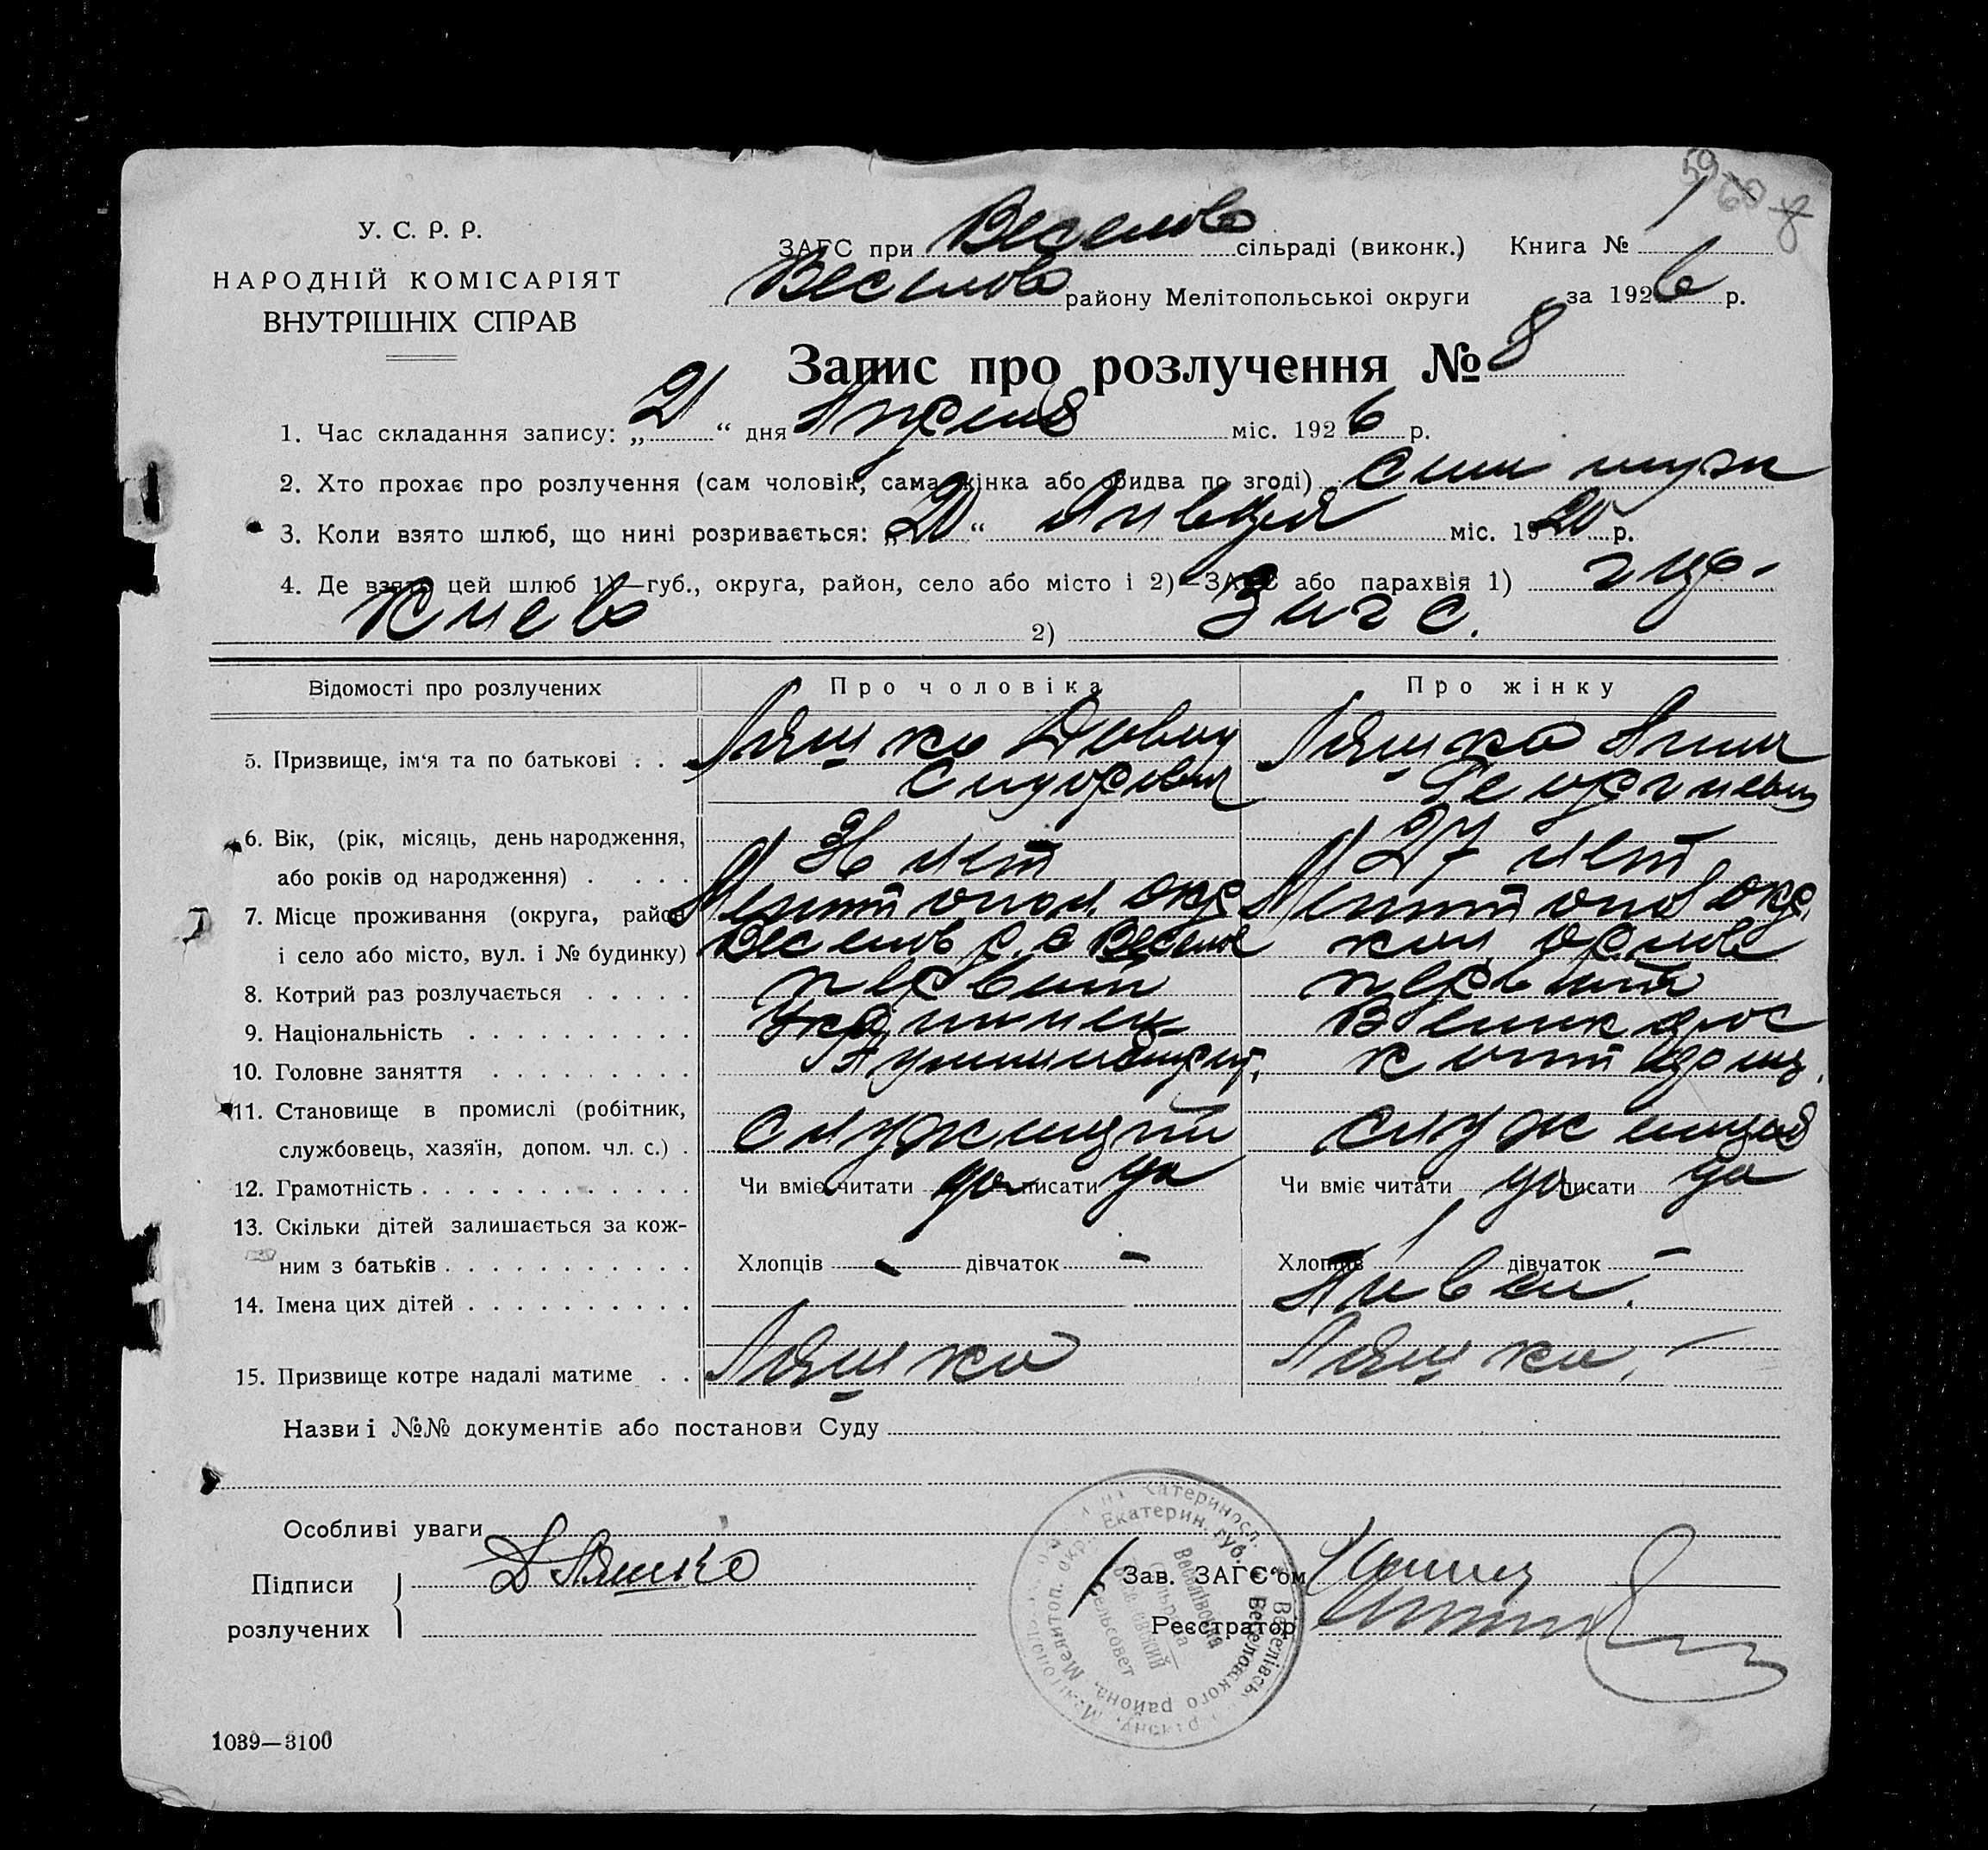 59 60 8
У. С. Р. Р.
НАРОДНІЙ КОМІСАРІЯТ
ВНУТРІШНІХ СПРАВ
ЗАГС при Веселов сільраді (виконк.) Книга № 1
Веселов району Мелітопольської округи за 1926 р.
Запис про розлучення № 8
1. Час складання запису: „21“ дня Апреля міс. 1926 р.
2. Хто прохає про розлучення (сам чоловік, сама жінка або обидва по згоді) сам муж
3. Коли взято шлюб, що нині розривається: „20“ Января міс. 1920 р.
4. Де взято цей шлюб 1)—губ., округа, район, село або місто і 2)—ЗАГС або парахвія 1) гор.
Киев 2) Загс.
Відомості про розлучених Про чоловіка Про жінку
5. Призвище, ім‘я та по батькові . . . Ляшко Давид Ляшко Анна
Сидорович Георгиевна
6. Вік, (рік, місяць, день народження,
або років од народження) . . . . 36 лет 27 лет
7. Місце проживання (округа, район Мелитопол. окр. Мелитопол окр.
і село або місто, вул. і № будинку) Веселов р. с Веселое
8. Котрий раз розлучається . . . . . первый первый
9. Національність . . . . . . . . . . Украинец Великорос
10. Головне заняття . . . . . . . . .
11. Становище в промислі (робітник,
службовець, хазяїн, допом. чл. с.) . Служащий служащая
12. Грамотність . . . . . . . . . . . . Чи вміє читати да писати да Чи вміє читати да писати да
13. Скільки дітей залишається за кож-
ним з батьків . . . . . . . . . . . Хлопців - дівчаток - Хлопців 1 дівчаток -
14. Імена цих дітей . . . . . . . . . .
15. Призвище котре надалі матиме . . Ляшко Ляшко.
Назви і №№ документів або постанови Суду
Особливі уваги
Підписи Д Ляшко Зав. ЗАГС‘ом
розлучених Реєстратор
Екатерин. губ. Веселовского района, Мелитоп. окр.
Веселівська сільрада
сельсовет
1039—3100